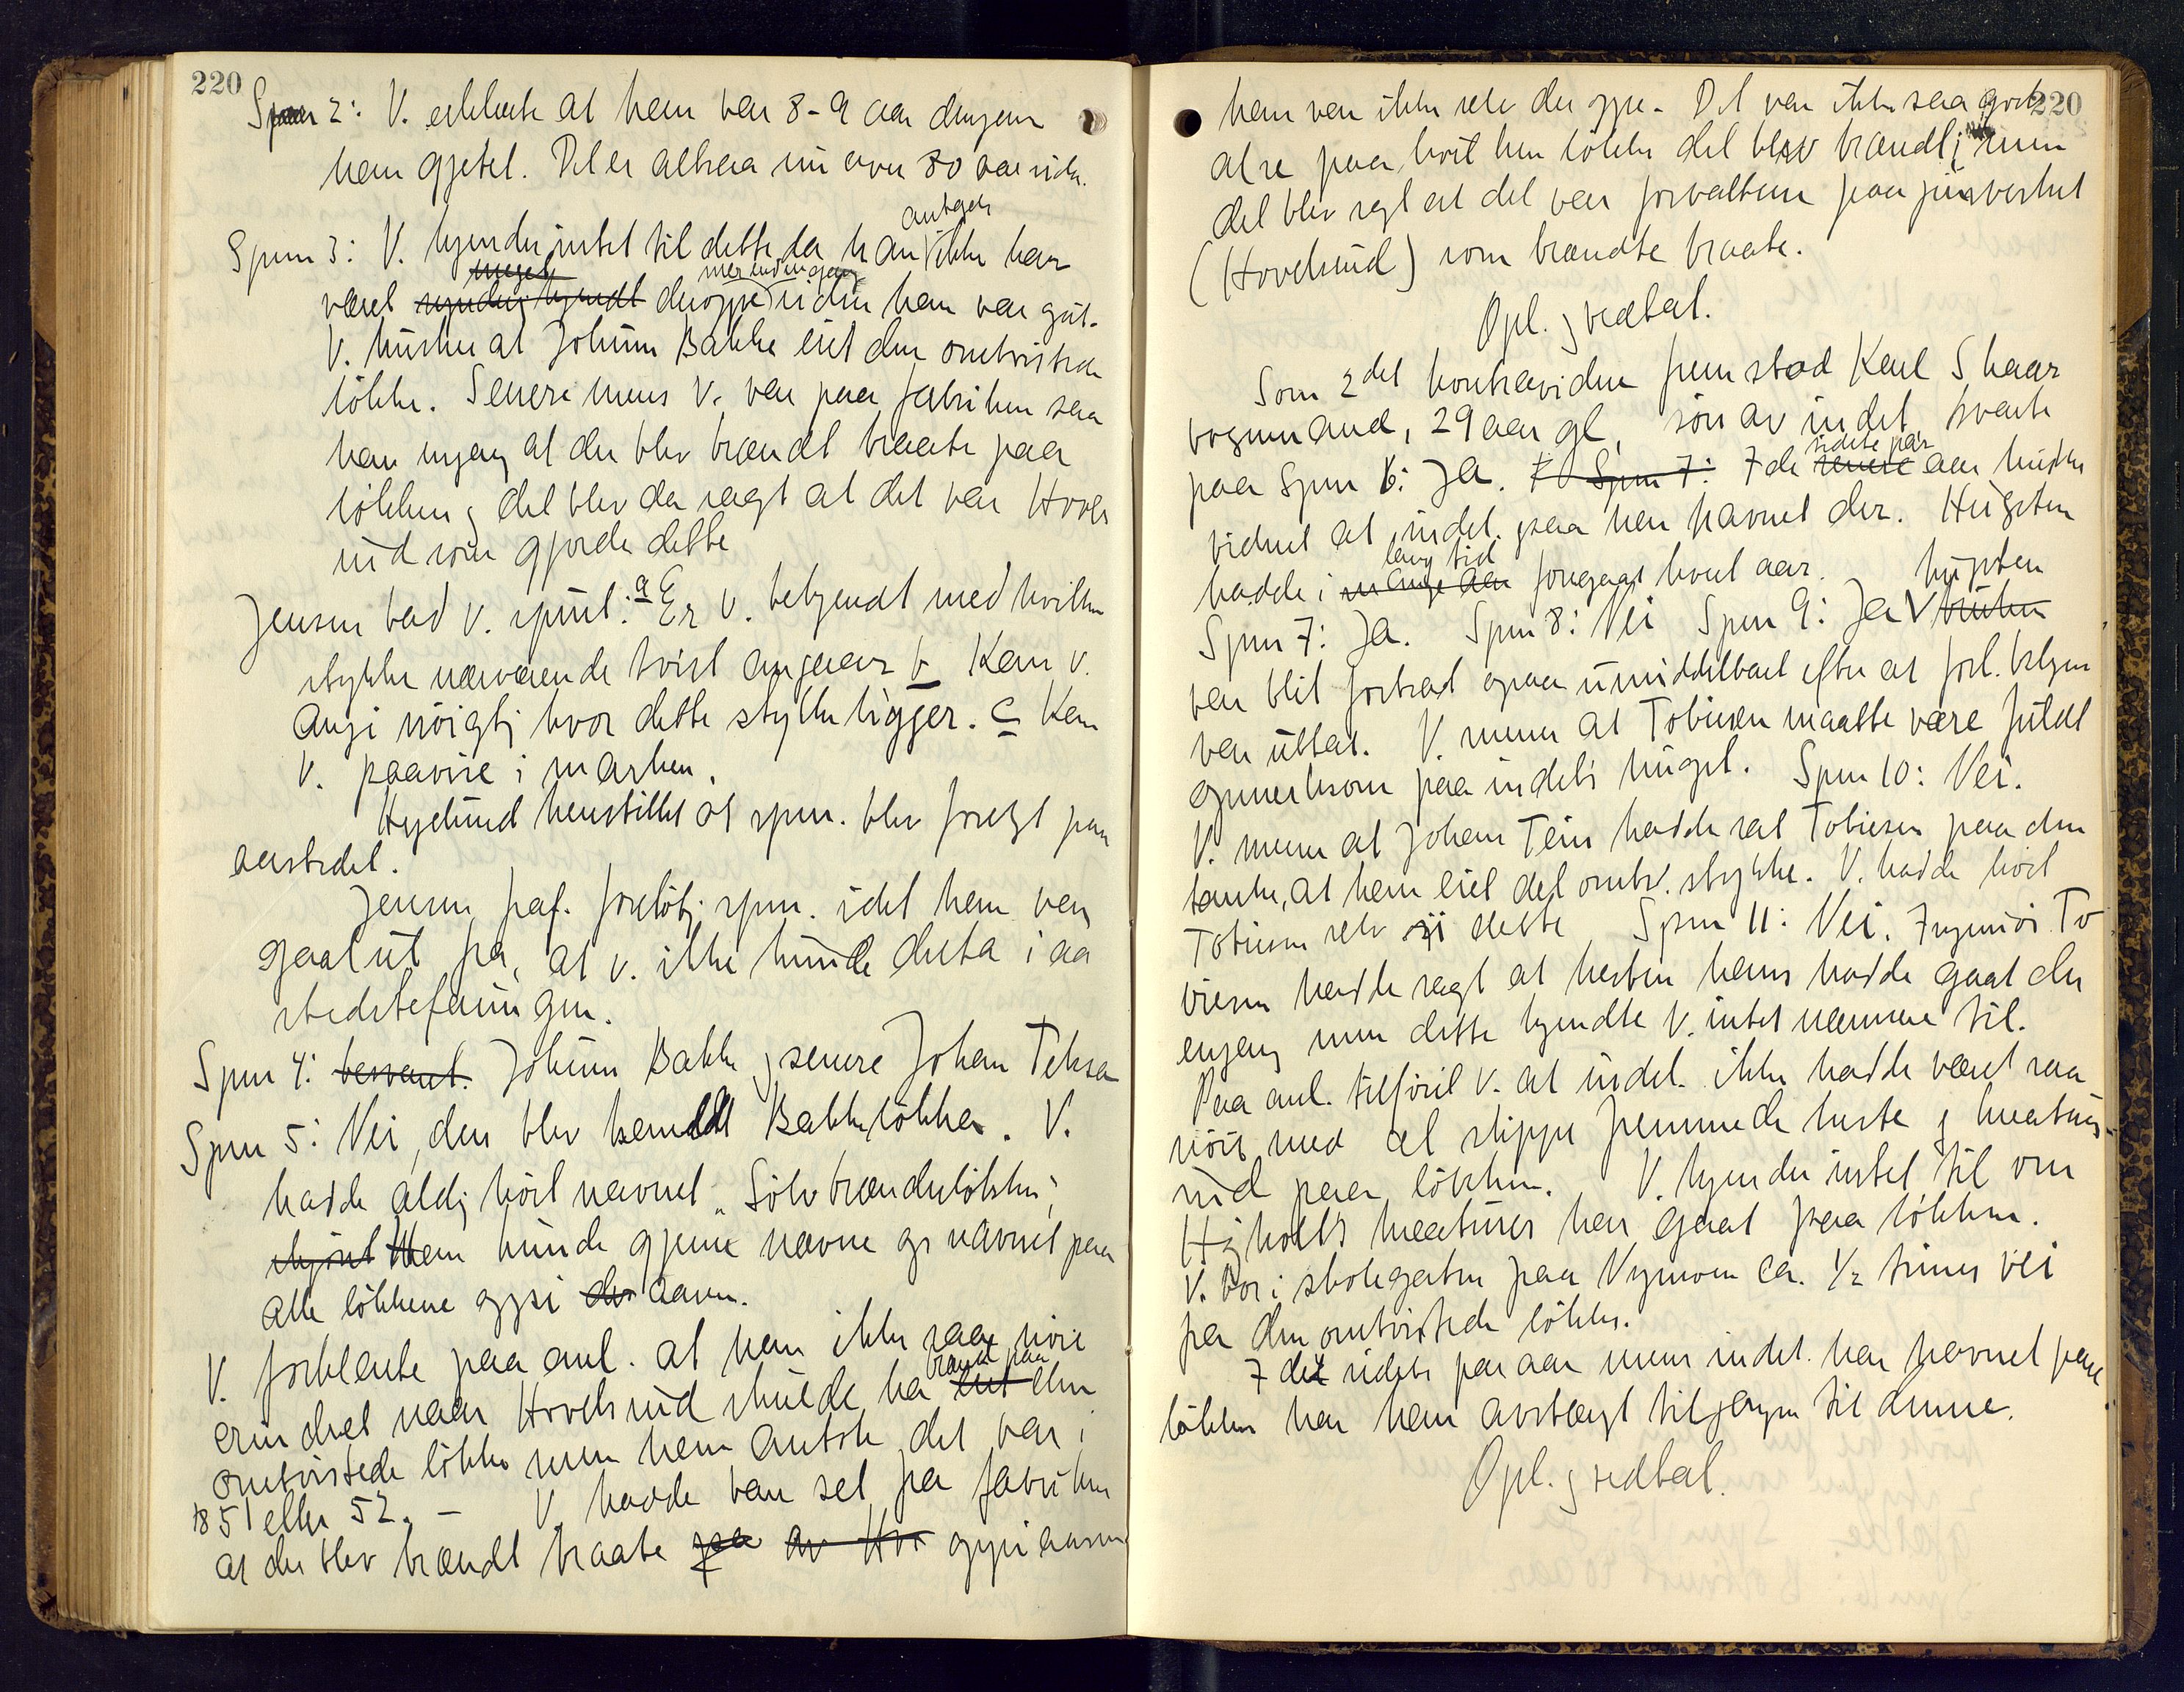 220
Spm 2: V. erklærte at han var 8-9 aar dengang
han gjetet. Det er altsaa nu over 80 aar siden.
antagelig
Spm 3: V. kjender intet til dette da han ikke har
meget mer end en gang
været kjendt deroppe siden han var gut.
V. husker at Johum Bakke eiet den omtvistede
løkke. Senere mens V. var paa fabrikken saa
han engang at der blev brændt braate paa
løkken, det blev da sagt at det var Hovel
rud som gjorde dette
Jensen bad V. spurt: a Er V. bekjendt med hvilken
stykke nærværende tvist angaar b Kan V.
angi nøigtig hvor dette stykke ligger. c Kan
V. paavise i marken.
Hyelund henstillet at spm. blev forelagt paa
aastedet.
Jensen fraf. foreløbig spm. idet han var
gaat ut fra, at V. ikke kunde delta i aa
stedsbefaringen.
Spm 4: besvaret. Johum Bakke og senere Johan
Spm 5: Nei, den blev kaldt Bakkeløkka. V.
hadde aldrig hørt navnet "Sølvbrændeløkken",
skjønt Han kunde gjerne nævne navnet paa
alle løkkene oppi der aasen.
V. forklarte paa anl. at han ikke saa nøie
brændt paa
erindret naar Hovelsrud skulde ha eiet den
omtvistede løkke men han antok det var i
1851 eller 52. - V. hadde bare set fra fabrikken
at der blev brændt braate paa av Hov oppi aasen
220
han var ikke selv der oppe. Det var ikke saa godt
at se paa hvilken løkke det blev brændt; men
det blev sagt at det var forvalteren paa
(Hovelsrud) som brændte braate.
Opl. og vedtat.
Som 2det kontravidne fremstod Karl Skaar
vognmand, 29 aar gl, søn av indst. svarte
sidste par
paa Spm 6: Ja. Spm 7: I de senere aar husker
vidnet at indst. paa havnet der. Hugsten
lang tid
hadde i mange aar foregaat hvert aar.
hugsten
Spm 7: Ja. Spm 8: Nei Spm 9: Ja V bruken
var blit fortsat ogsaa umiddelbart efter at forl. beklagen
var uttat. V. mener at Tobiesen maatte være fuldt
opmerksom paa indst's hugst. Spm 10: Nei.
V. mener at Johan Tein hadde sat Tobiesen paa den
tanke, at han eiet det omtv. stykke. V. hadde hørt
Tobiesen selv si dette Spm 11: Nei. Ingeniør To
biesen hadde sagt at hesten hans hadde gaat der
engang men dette kjendte V. intet nærmere til.
Paa anl. tilføiet V. at indst. ikke hadde været saa
nøie med at slippe fremmede heste og kreaturer
ind paa løkken. V. kjender intet til om
kreaturer har gaat paa løkken.
V. bor i skolegaten paa Nymoen ca. 1/2 times vei
fra den omtvistede løkke.
I det sidste par aar mens indst. har havnet paa
løkken har han avstængt tilgangen til denne.
Opl. og vedtat.